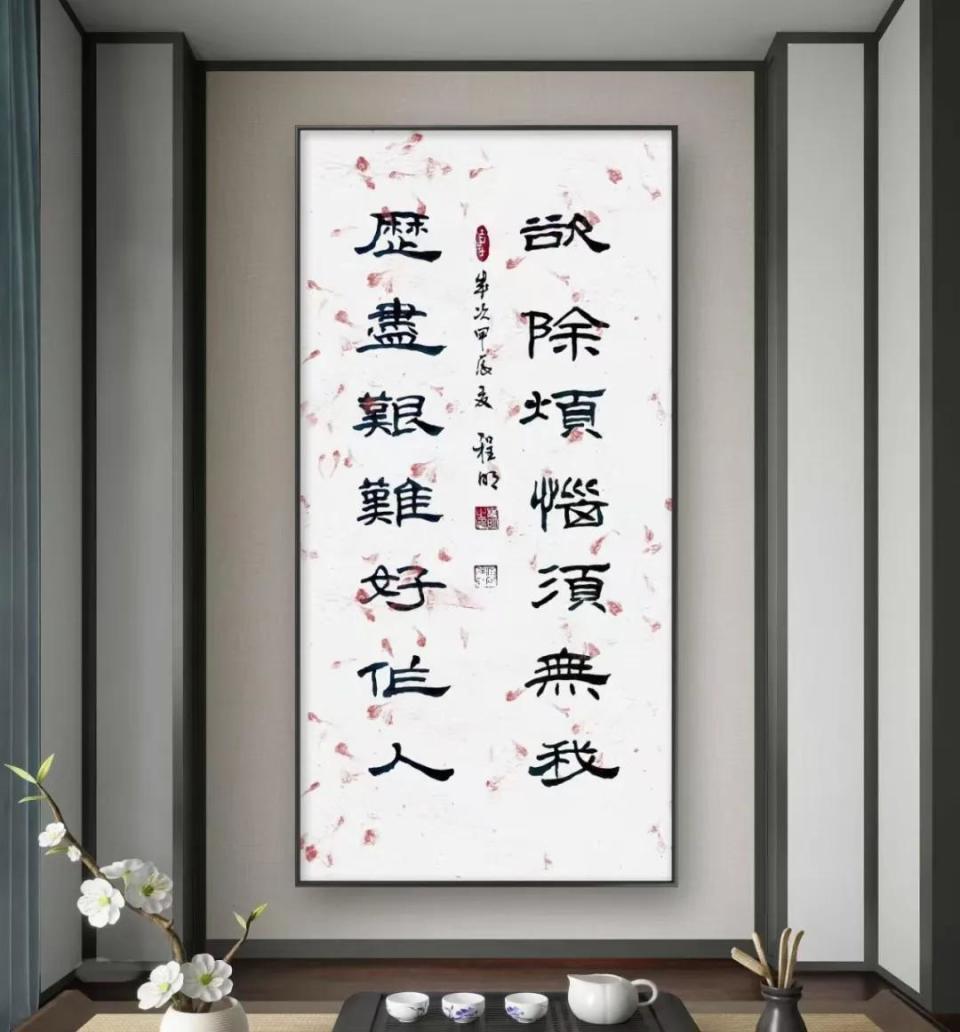 欲除煩惱須無我
歲次甲辰夏 程明
歷盡艱難好作人